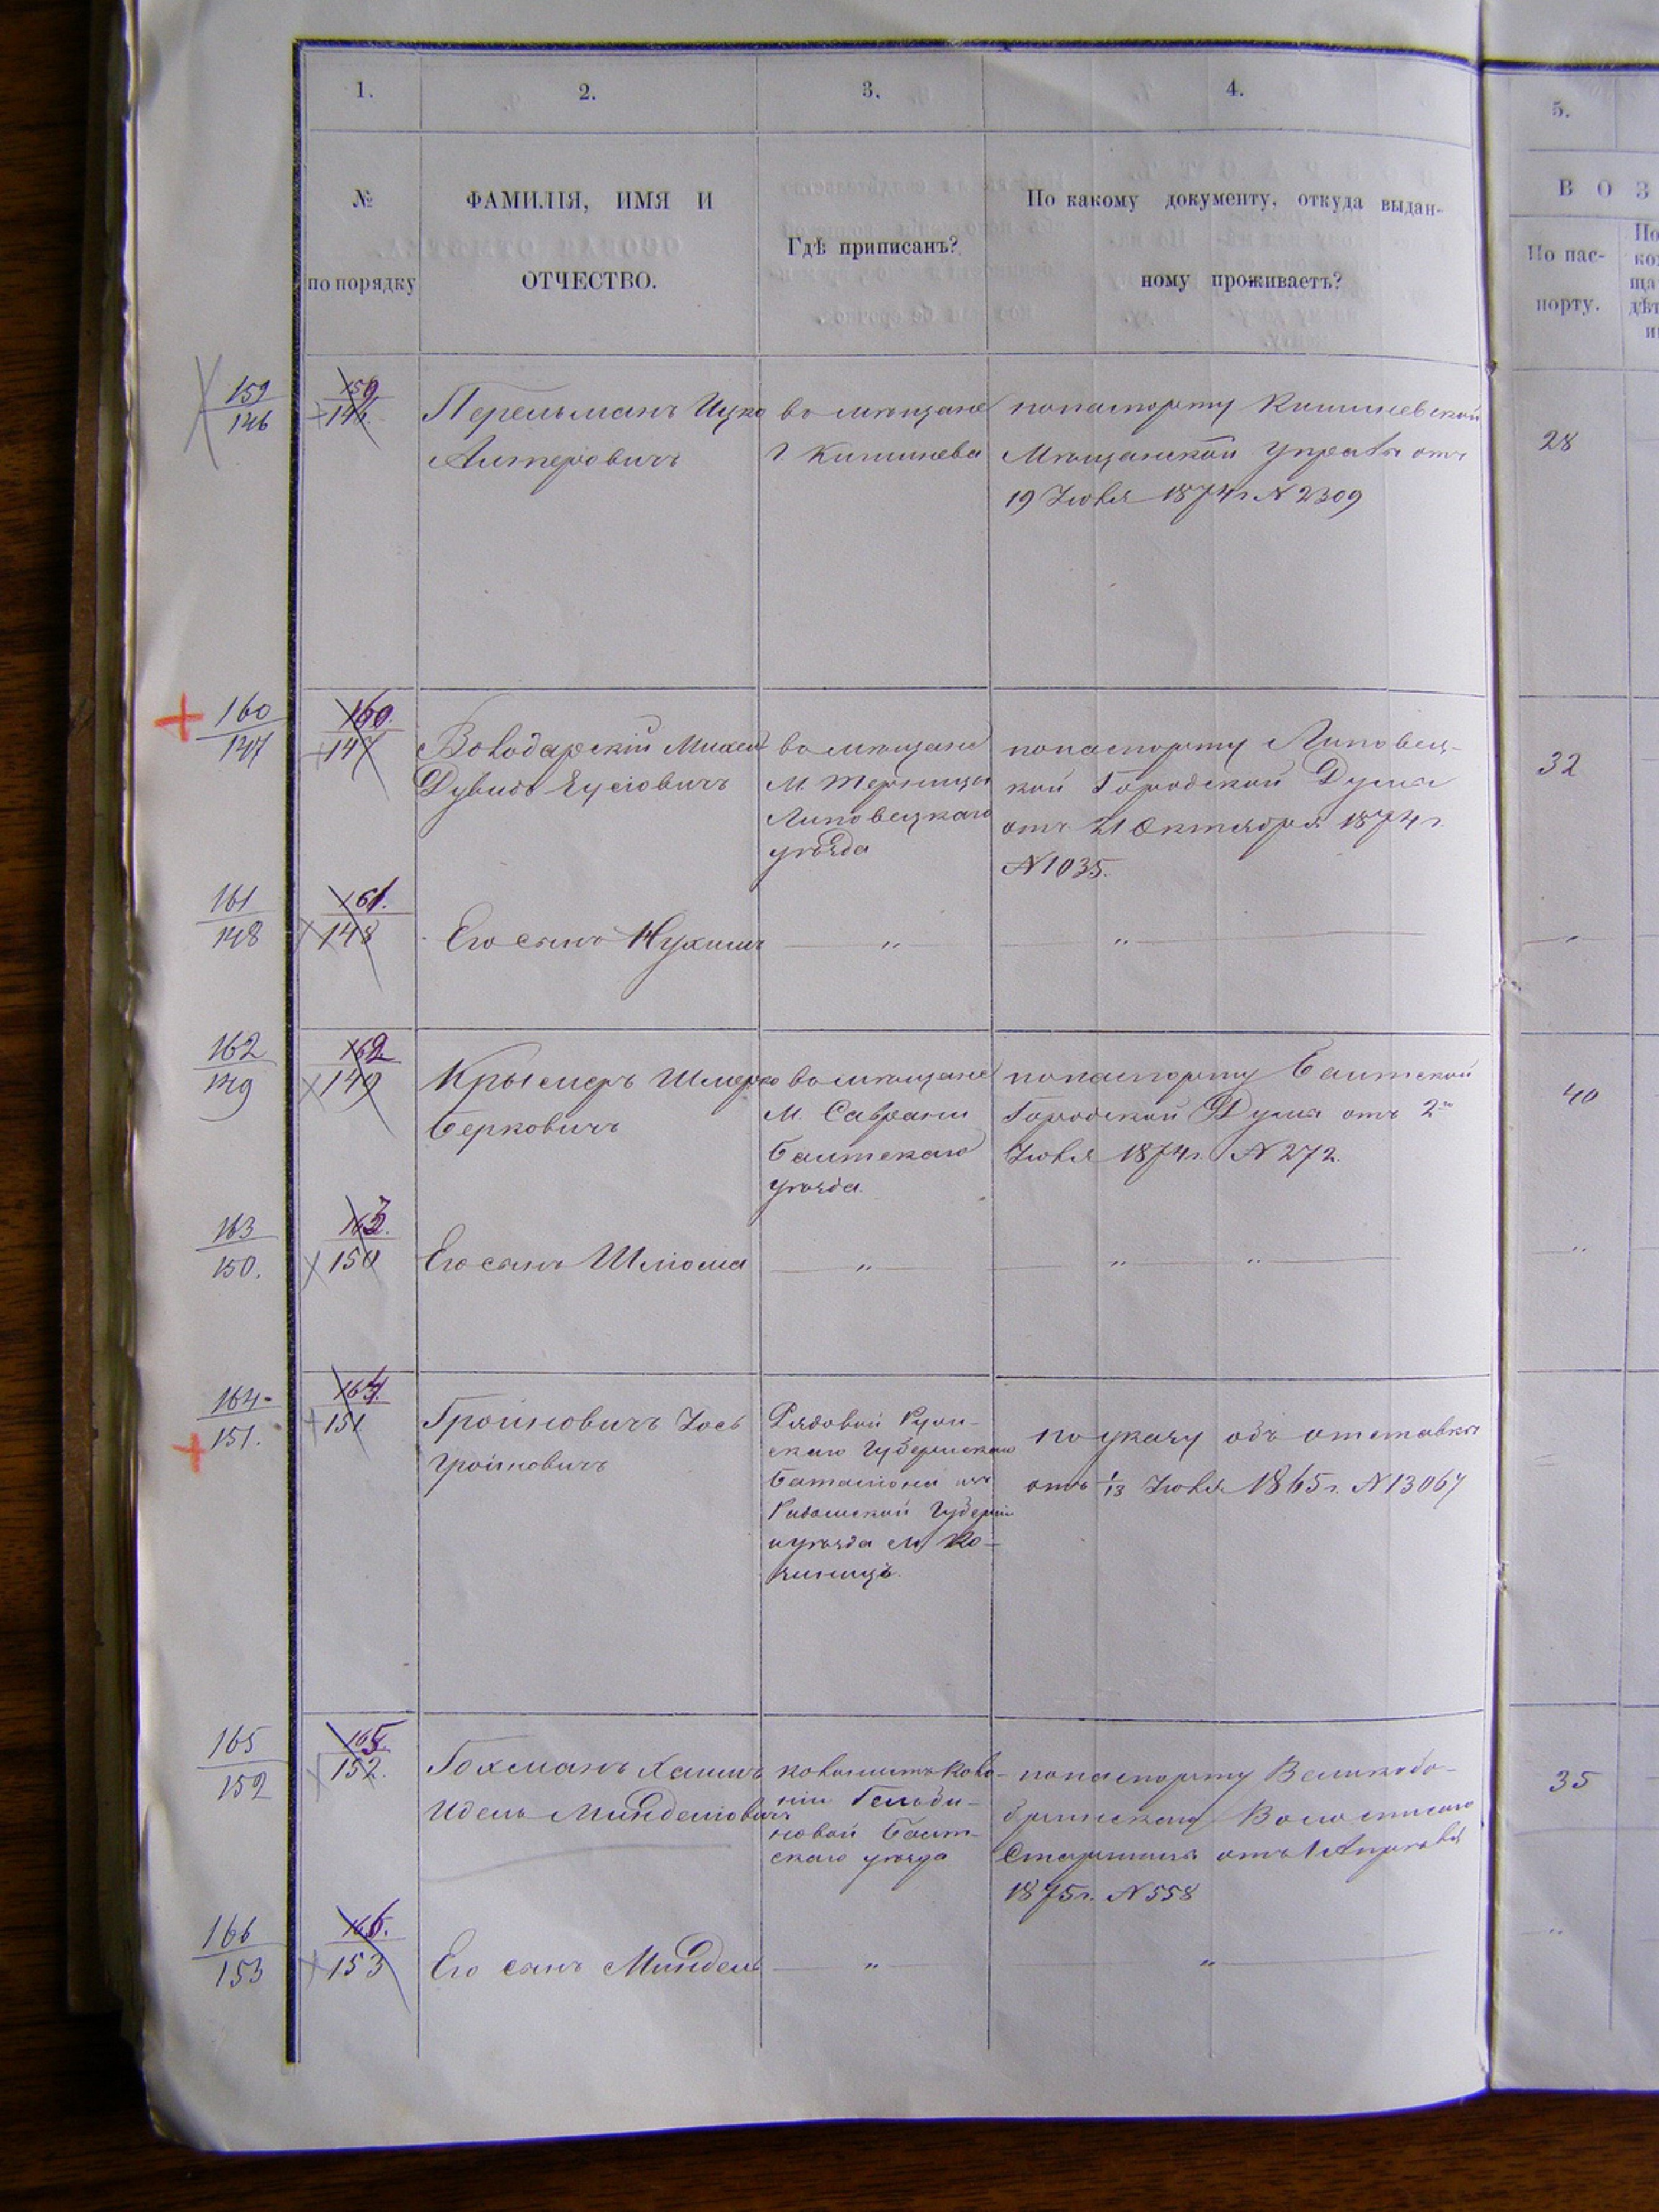 1.
2.
3.
4.
5.
№
по порядку
ФАМИЛІЯ, ИМЯ И
ОТЧЕСТВО.
Гдѣ приписанъ?
По какому документу, откуда выдан-
ному проживаетъ?
В О З
По пас-
порту.
159
146
159
146.
Перельманъ Ицко
Аитеровичъ
во мѣщане
г Кишинева
по паспорту Кишиневской
Мѣщанской Управы отъ
19 Іюля 1874 г № 2309
28
160
147
160.
147
Володарскій Михель
Дувидъ Еусіовичъ
во мѣщане
М.
Липовецкаго
уѣзда
по паспорту Липовец-
кой Городской Думы
отъ 21 Октября 1874 г.
№ 1035.
32
161
148
161.
148
Его сынъ Нухимъ
"
"
"
162
149
162
149
Крымеръ Шмерко
Берковичъ
во мѣщане
М. Саврани
Балтскаго
уѣзда.
по паспорту Балтской
Городской Думы отъ 2го
Іюля 1874 г. № 272.
40
163
150.
163.
150
Его сынъ Шліома
"
" "
"
164
151.
164.
151
Гройновичъ Іось
Гройновичъ
Рядовой
скаго Губернскаго
Баталіона изъ
Радомской Губерніи
и уѣзда м. Ко-
по указу объ отставкѣ
отъ 1/13 Іюля 1865 г. № 13067
165
152
165.
152.
Гохманъ Хаимъ
Идель Минделіовичъ
колонистъ Коло-
ніи Гельби-
новой Балт-
скаго уѣзда
по паспорту Великобо-
Волостнаго
Старшины отъ 1 Апрѣля
1875 г. № 558
35
166
153
166.
153
Его сынъ Миндель
"
"
"